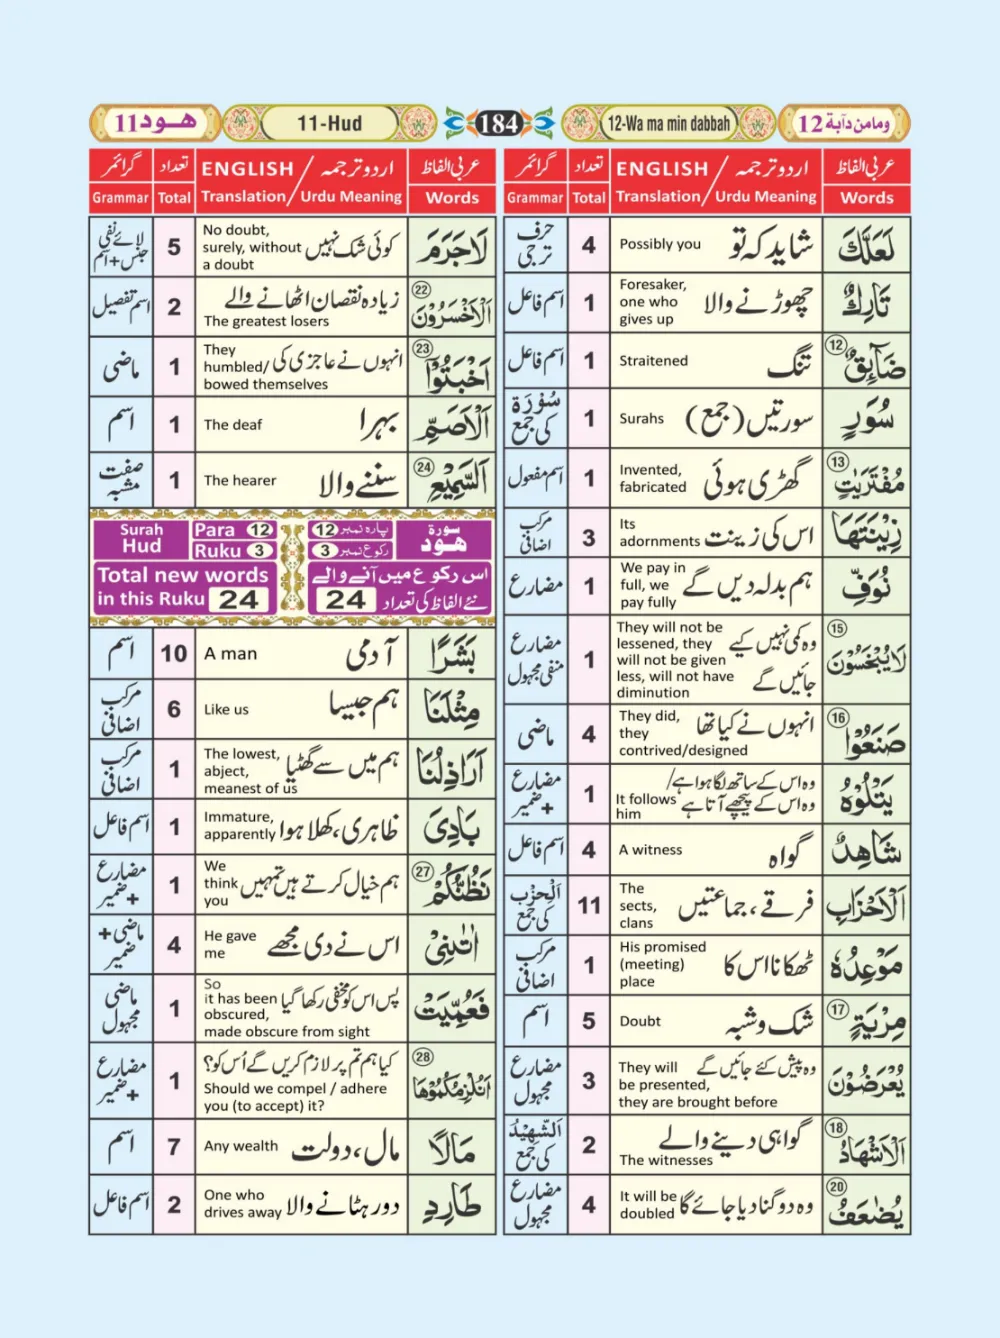 هود 11
11-Hud
184
12-Wa ma min dabbah
ومامن دآبة 12
عربی الفاظ
اردو ترجمہ / ENGLISH
تعداد
گرائمر
Words
Translation / Urdu Meaning
Total
Grammar
لَعَلَّكَ شاید کہ تو Possibly you 4 حرف ترجی
تَارِكٌ چھوڑنے والا Foresaker, one who gives up 1 اسم فاعل
ضَآئِقٌ ⑫ تنگ Straitened 1 اسم فاعل
سُوَرٍ سورتیں (جمع) Surahs 1 سُوْرَة کی جمع
مُفْتَرَيٰتٍ ⑬ گھڑی ہوئی Invented, fabricated 1 اسم مفعول
زِيْنَتَهَا اس کی زینت Its adornments 3 مرکب اضافی
نُوَفِّ ہم بدلہ دیں گے We pay in full, we pay fully 1 مضارع
لَا يُبْخَسُوْنَ ⑮ وہ کمی نہیں کیے جائیں گے They will not be lessened, they will not be given less, will not have diminution 1 مضارع منفی مجہول
صَنَعُوْا ⑯ انہوں نے کیا تھا They did, they contrived/designed 4 ماضی
يَتْلُوْهُ وہ اس کے ساتھ لگا ہوا ہے/ وہ اس کے پیچھے آتا ہے It follows him 1 مضارع + ضمیر
شَاهِدٌ گواہ A witness 4 اسم فاعل
اَلْاَحْزَابِ فرقے، جماعتیں The sects, clans 11 اَلْحِزْب کی جمع
مَوْعِدُهٗ ٹھکانا اس کا His promised (meeting) place 1 مرکب اضافی
مِرْيَةٍ ⑰ شک و شبہ Doubt 5 اسم
يُعْرَضُوْنَ وہ پیش کئے جائیں گے They will be presented, they are brought before 3 مضارع مجہول
اَلْاَشْهَادُ ⑱ گواہی دینے والے The witnesses 2 اَلشَّهِيْدُ کی جمع
يُضٰعَفُ ⑳ وہ دوگنا دیا جائے گا It will be doubled 4 مضارع مجہول
عربی الفاظ
اردو ترجمہ / ENGLISH
تعداد
گرائمر
Words
Translation / Urdu Meaning
Total
Grammar
لَاجَرَمَ کوئی شک نہیں No doubt, surely, without a doubt 5 لائے نفی جنس + اسم
اَلْاَخْسَرُوْنَ ㉒ زیادہ نقصان اٹھانے والے The greatest losers 2 اسم تفصیل
اَخْبَتُوْٓا ㉓ انہوں نے عاجزی کی They humbled/ bowed themselves 1 ماضی
اَلْاَصَمِّ بہرا The deaf 1 اسم
اَلسَّمِيْعِ ㉔ سننے والا The hearer 1 صفت مشبہ
سورة هود
پارہ نمبر 12
رکوع نمبر 3
Para 12
Ruku 3
Surah Hud
اس رکوع میں آنے والے
نئے الفاظ کی تعداد 24
Total new words
in this Ruku 24
بَشَرًا آدمی A man 10 اسم
مِثْلَنَا ہم جیسا Like us 6 مرکب اضافی
اَرَاذِلُنَا ہم میں سے گھٹیا The lowest, abject, meanest of us 1 مرکب اضافی
بَادِيَ ظاہری، کھلا ہوا Immature, apparently 1 اسم فاعل
نَظُنُّكُمْ ㉗ ہم خیال کرتے ہیں تمہیں We think you 1 مضارع + ضمیر
اٰتٰىنِيْ اس نے دی مجھے He gave me 4 ماضی + ضمیر
فَعُمِّيَتْ پس اس کو مخفی رکھا گیا So it has been obscured, made obscure from sight 1 ماضی مجہول
اَنُلْزِمُكُمُوْهَا ㉘ کیا ہم تم پر لازم کریں گے اُس کو؟ Should we compel / adhere you (to accept) it? 1 مضارع + ضمیر
مَالًا مال، دولت Any wealth 7 اسم
طَارِدِ دور ہٹانے والا One who drives away 2 اسم فاعل